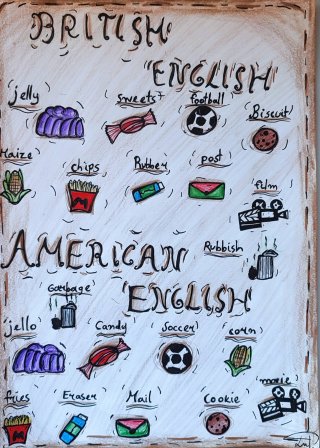 BRITISH
ENGLISH
jelly
sweets
football
Biscuit
Maize
chips
Rubber
post
film
Rubbish
AMERICAN
ENGLISH
Garbage
jello
Candy
Soccer
corn
fries
Eraser
Mail
Cookie
movie